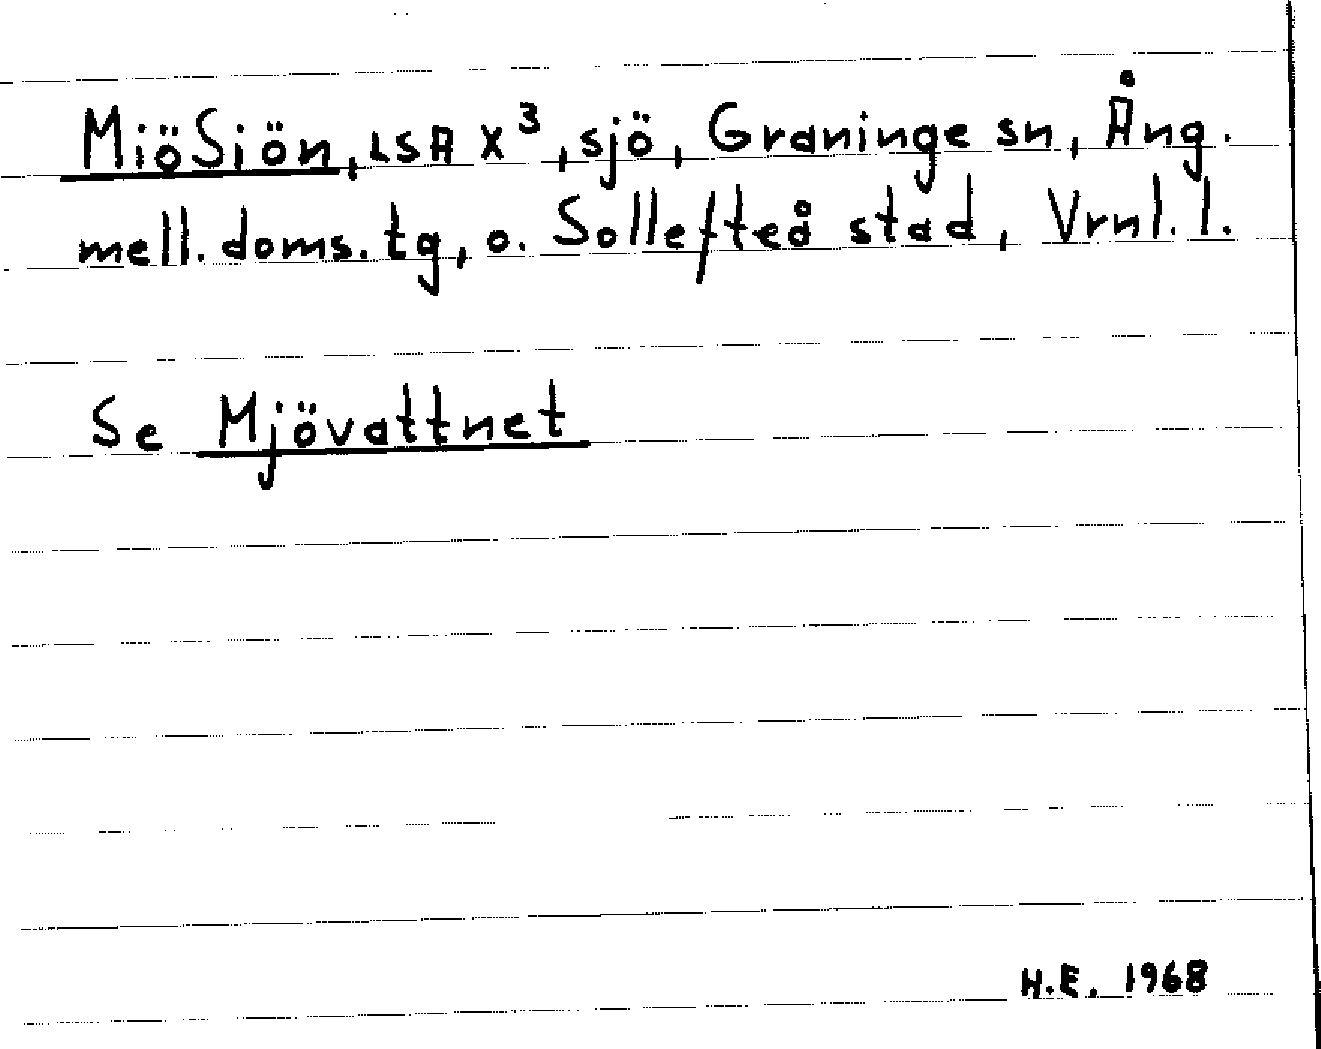 MiöSiön, LSA X³, sjö, Graninge sn, Ång.
mell. doms. tg, o. Sollefteå stad, Vrnl. l.
Se Mjövattnet
H.E. 1968